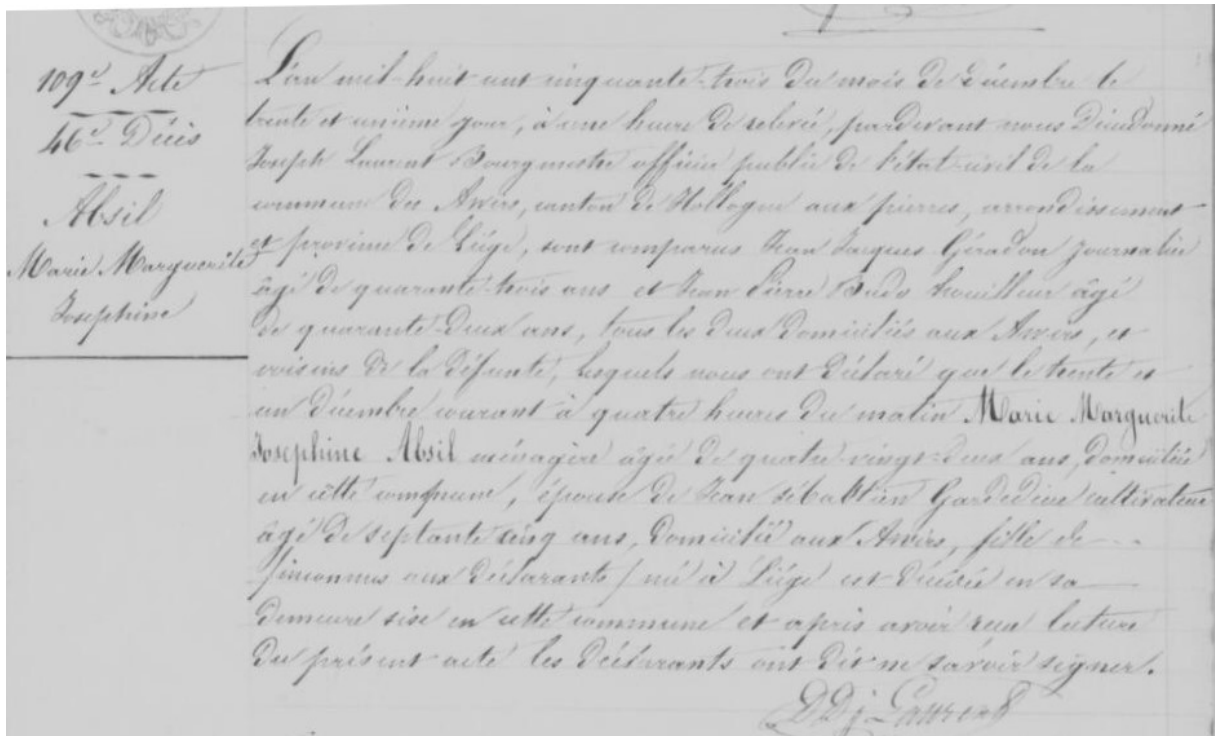 109e Acte
46e Décès
Absil
Marie Marguerite
Josephine
L'an mil-huit cent cinquante-trois du mois de Décembre le
trente et unième jour, à une heure de relevée, pardevant nous Dieudonné
Joseph Laurent Bourgmestre officier public de l'état-civil de la
commune des Awirs, canton de Hollogne aux pierres, arrondissement
et province de Liége, sont comparus Jean Jacques Géradon journalier
âgé de quarante-trois ans et Jean Pierre houilleur âgé
de quarante-deux ans, tous les deux domiciliés aux Awirs, et
voisins de la défunte, lesquels nous ont déclaré que le trente et
un décembre courant à quatre heures du matin Marie Marguerite
Josephine Absil ménagère âgée de quatre-vingt-deux ans, domiciliée
en cette commune, épouse de Jean Sébastien cultivateur
âgé de septante cinq ans, domicilié aux Awirs, fille de ---
/inconnus aux déclarants/ né à Liége est décédée en sa
demeure sise en cette commune et après avoir reçu lecture
du présent acte les déclarants ont dit ne savoir signer.
DDj Laurent